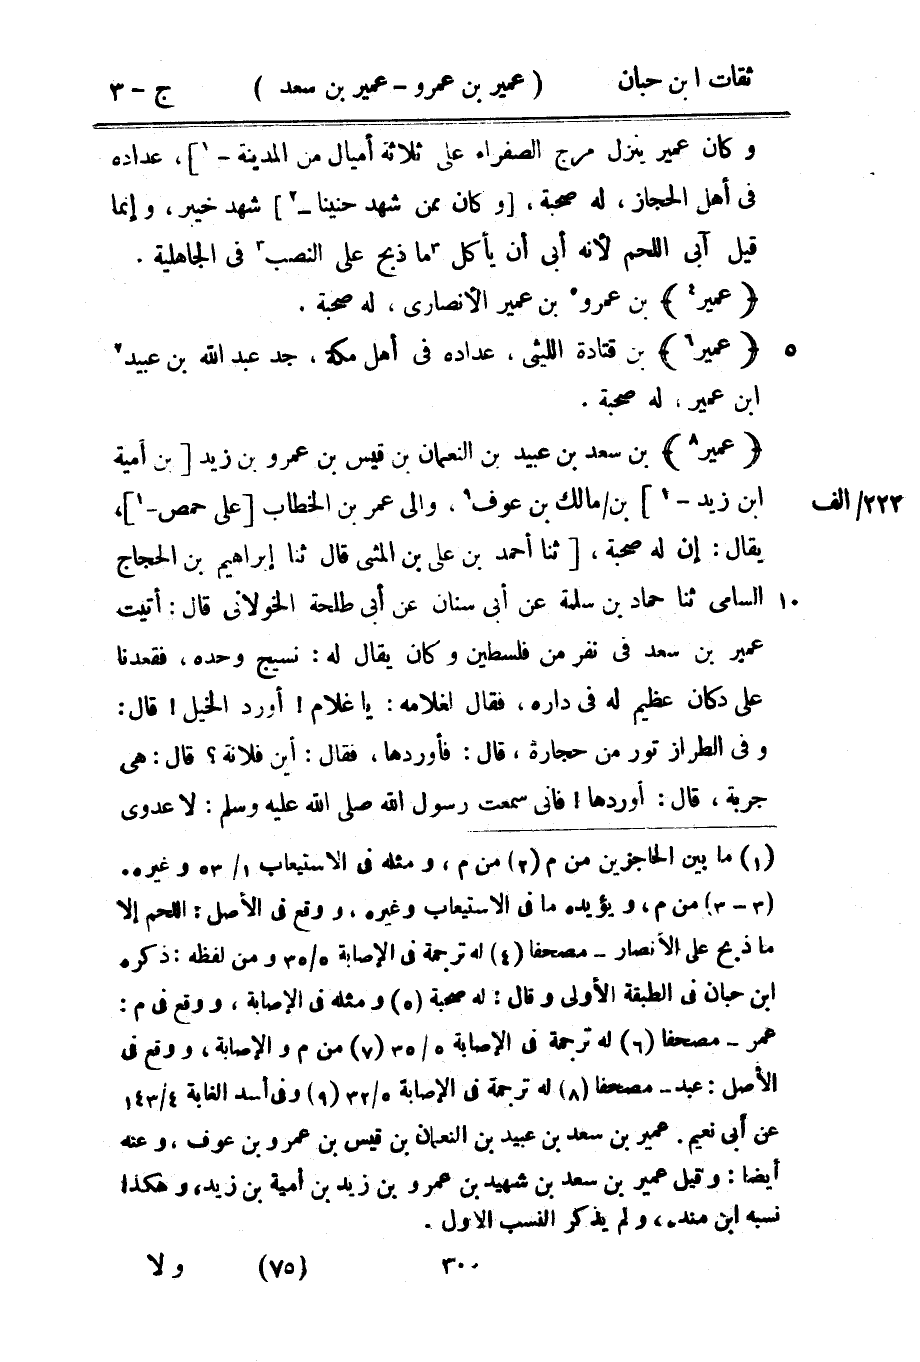 ثقات ابن حبان ( عمير بن عمرو – عمير بن سعد ) ج – ٣
و كان عمير ينزل مرج الصفراء على ثلاثة أميال من المدينة – ١ ] ، عداده
فى أهل الحجاز ، له صحبة ، [ و كان ممن شهد حنينا – ٢ ] شهد خيبر ، و إنما
قيل آبى اللحم لأنه أبى أن يأكل ٣ ما ذبح على النصب ٣ فى الجاهلية .
﴿ عمير ٤ ﴾ بن عمرو ٥ بن عمير الأنصارى ، له صحبة .
٥ ﴿ عمير ٦ ﴾ بن قتادة الليثى ، عداده فى أهل مكة ، جد عبد الله بن عبيد ٧
ابن عمير ، له صحبة .
﴿ عمير ٨ ﴾ بن سعد بن عبيد بن النعمان بن قيس بن عمرو بن زيد [ بن أمية
٢٢٣/ الف ابن زيد – ١ ] بن/مالك بن عوف ٩ ، والى عمر بن الخطاب [ على حمص – ١ ] ،
يقال : إن له صحبة ، [ ثنا أحمد بن على بن المثنى قال ثنا إبراهيم بن الحجاج
١٠ السامى ثنا حماد بن سلمة عن أبى سنان عن أبى طلحة الخولانى قال : أتيت
عمير بن سعد فى نفر من فلسطين و كان يقال له : نسيج وحده ، فقعدنا
على دكان عظيم له فى داره ، فقال لغلامه : يا غلام ! أورد الخيل ! قال :
و فى الطراز تور من حجارة ، قال : فأوردها ، فقال : أين فلانة ؟ قال : هى
جربة ، قال : أوردها ! فانى سمعت رسول الله صلى الله عليه وسلم : لا عدوى
(١) ما بين الحاجزين من م (٢) من م ، و مثله فى الاستيعاب ١/ ٥٣ و غيره .
(٣ – ٣) من م ، و يؤيده ما فى الاستيعاب وغيره ، و وقع فى الأصل : اللحم إلا
ما ذبح على الأنصار – مصحفا (٤) له ترجمة فى الإصابة ٣٥/٥ و من لفظه : ذكره
ابن حبان فى الطبقة الأولى و قال : له صحبة (٥) و مثله فى الإصابة ، و وقع فى م :
عمر – مصحفا (٦) له ترجمة فى الإصابة ٥ /٣٥ (٧) من م و الإصابة ، و وقع فى
الأصل : عبد – مصحفا (٨) له ترجمة فى الإصابة ٣٢/٥ (٩) وفى أسد الغابة ١٤٣/٤
عن أبى نعيم . عمير بن سعد بن عبيد بن النعمان بن قيس بن عمرو بن عوف ، و عنه
أيضا : و قيل عمير بن سعد بن شهيد بن عمرو بن زيد بن أمية بن زيد ، و هكذا
نسبه ابن منده ، و لم يذكر النسب الاول .
٣٠٠ (٧٥) و لا